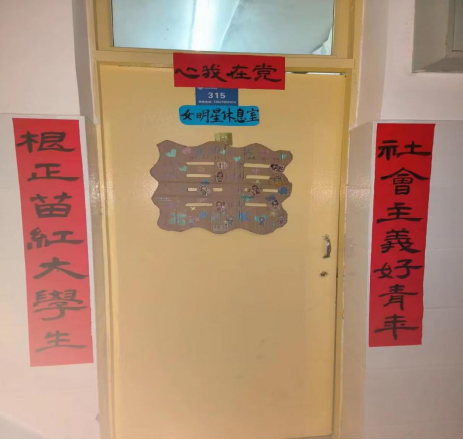 党在我心
315
女明星休息室
社會主義好青年
根正苗紅大學生